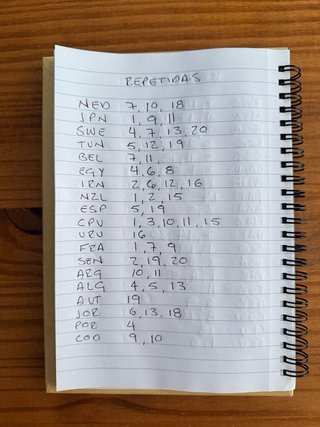 REPETIDAS
NED 7, 10, 18
JPN 1, 9, 11
SWE 4, 7, 13, 20
TUN 5, 12, 19
BEL 7, 11,
EGY 4, 6, 8
IRN 2, 6, 12, 16
NZL 1, 2, 15
ESP 5, 19
CPV 1, 3, 10, 11, 15
URU 16
FRA 1, 7, 9
SEN 2, 19, 20
ARG 10, 11
ALG 4, 5, 13
AUT 19
JOR 6, 13, 18
POR 4
COD 9, 10